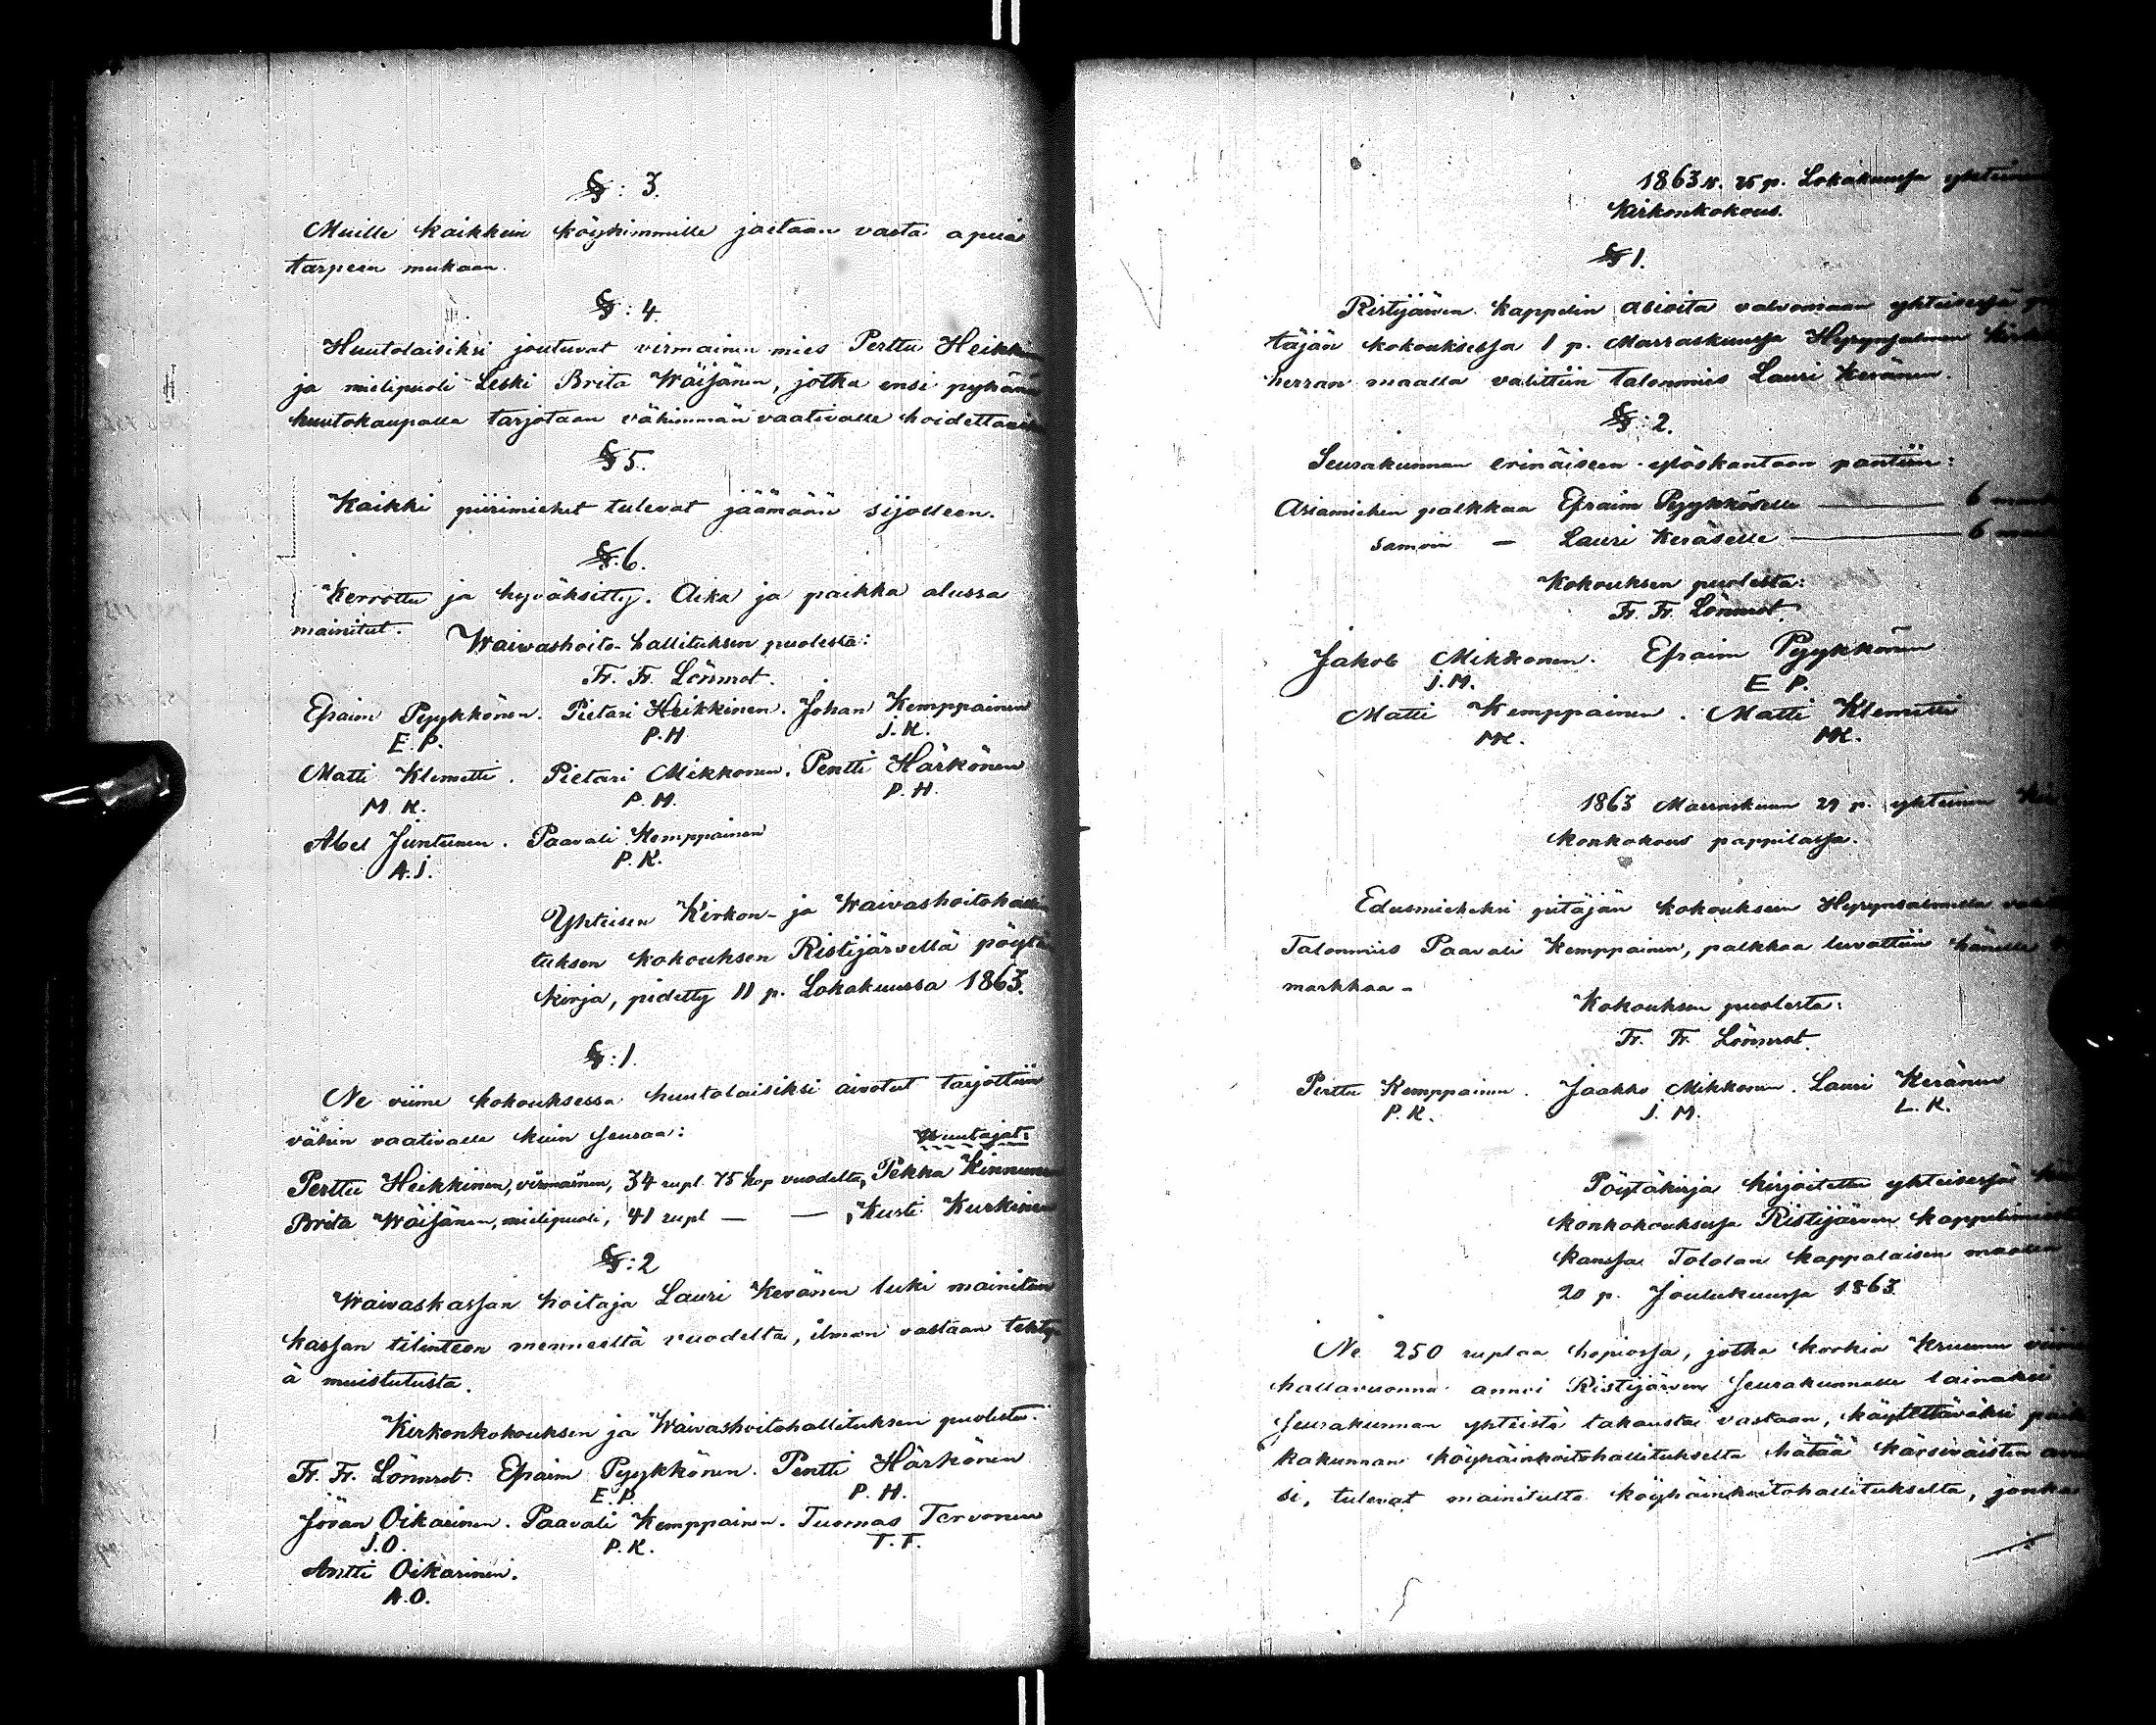 §: 3.
Muille kaikkein köyhimmille jaetaan vasta apua
tarpeen mukaan.
§: 4.
Huutolaisiksi joutuvat virmainen mies Perttu Heikki
ja mielipuoli Leski Brita Wäisänen, jotka ensi pyhänä
huutokaupalla tarjotaan vähimmän vaativalle hoidettavik
§ 5.
Kaikki piirimiehet tulevat jäämään sijolleen.
§. 6.
Kerrottu ja hyväksitty. Aika ja paikka alussa
mainitut.
Waivashoito-hallituksen puolesta:
Fr. Fr. Lönnrot.
Efraim Pyykkönen. Pietari Heikkinen. Johan Kemppainen
E. P. P. H J. K.
Matti Klemetti. Pietari Mikkonen. Pentti Härkönen
M. K. P. M. P. H.
Abel Juntunen. Paavali Kemppainen
A. J. P. K.
Yhteisen Kirkon- ja Waivashoitohalli
tuksen kokouksen Ristijärvellä pöytä
kirja, pidetty 11 p. Lokakuussa 1863.
§: 1.
Ne viime kokouksessa huutolaisiksi aivotut tarjottiin
vähin vaativalle kuin seuraa:
Huutajat:
Perttu Heikkinen, virmainen, 34 rupl. 75 kop vuodelta, Pekka Kinnunen
Brita Wäisänen, mielipuoli, 41 rupl — — , Kusti Kurkinen
§: 2
Waivaskassan hoitaja Lauri Keränen luki mainitun
kassan tilinteon menneeltä vuodelta, ilman vastaan tehty
ä muistutusta.
Kirkonkokouksen ja Waivashoitohallituksen puolesta:
Fr. Fr. Lönnrot. Efraim Pyykkönen. Pentti Härkönen
E. P. P. H.
Jövan Oikarinen. Paavali Kemppainen. Tuomas Tervonen
J. O. P. K. T. T.
Antti Oikarinen.
A. O.
1863 v. 25 p. Lokakuussa yhteinen
Kirkonkokous.
§ 1.
Ristijärven kappelin asioita valvomaan yhteisessä pi
täjän kokouksessa 1 p. Marraskuussa Hyrynsalmen Kirkko
herran maalla valittiin Talonmies Lauri Keränen.
§: 2.
Seurakunnan erinäiseen ylöskantoon pantiin:
Asiamiehen palkkaa Efraim Pyykköselle — 6 mark
samoin — Lauri Keräselle — 6 mark
Kokouksen puolesta:
Fr. Fr. Lönnrot.
Jakob Mikkonen. Efraim Pyykkönen
J. M. E P.
Matti Kemppainen. Matti Klemetti
MK. MK.
1863 Marraskuun 29 p. yhteinen Kir
konkokous pappilassa.
Edusmieheksi pitäjän kokoukseen Hyrynsalmella valit
Talonmies Paavali Kemppainen, palkkaa luvattiin hänelle
markkaa -
Kokouksen puolesta:
Fr. Fr. Lönnrot.
Perttu Kemppainen. Jaakko Mikkonen. Lauri Keränen
P. K. J. M. L. K.
Pöytäkirja kirjoitettu yhteisessä Kir
konkokouksessa Ristijärven kappelimiesten
kanssa Tololan kappalaisen maalla
20 p. Joulukuussa 1863.
Ne 250 ruplaa hopiassa, jotka korkia Kruunu viime
hallavuonna annoi Ristijärven Seurakunnalle lainaksi
Seurakunnan yhteistä takausta vastaan, käytettäväksi paik
kakunnan köyhäinhoitohallitukselta hätää kärsiväisten avu
si, tulevat mainitulta köyhäinhoitohallitukselta, jonka